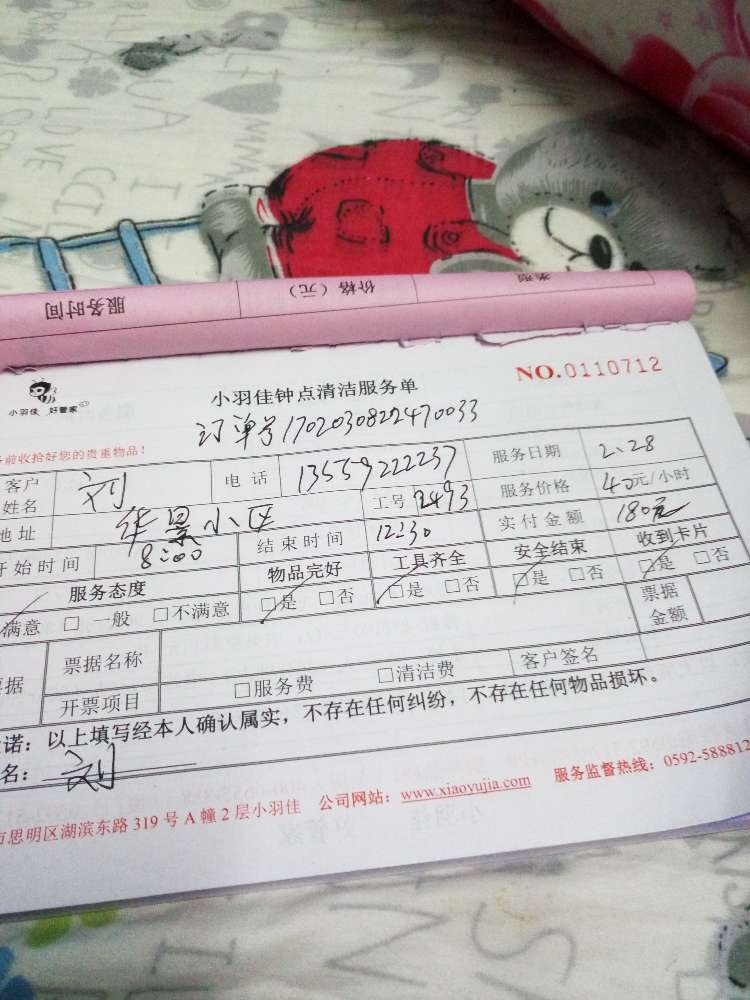 服务时间 价格（元） 类型
NO.0110712
小羽佳 好管家
小羽佳钟点清洁服务单
订单号1702030822470033
前收拾好您的贵重物品！
客户姓名 刘 电话 13559222237 服务日期 2.28
地址 华景小区 工号 2493 服务价格 40元/小时
开始时间 8:00 结束时间 12:30 实付金额 180元
服务态度 物品完好 工具齐全 安全结束 收到卡片
满意 □ 一般 □不满意 □是 □否 □是 □否 □是 □否 □是 □否
票据 票据名称 票据金额
开票项目 □服务费 □清洁费 客户签名
诺：以上填写经本人确认属实，不存在任何纠纷，不存在任何物品损坏。
名：刘
市思明区湖滨东路 319 号 A 幢 2 层小羽佳 公司网站：www.xiaoyujia.com 服务监督热线：0592-588812